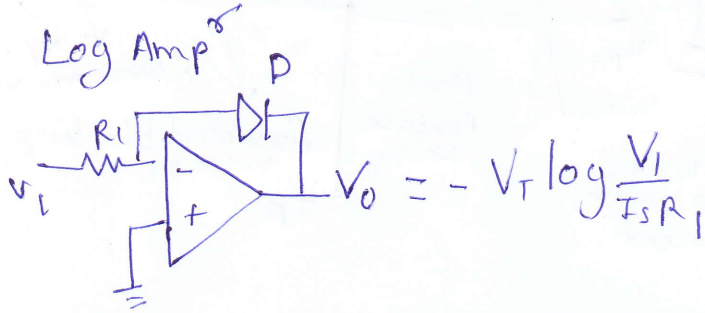 Log Ampʳ
D
R1
V1
-
+
V0 = - VT log V1 / IsR1